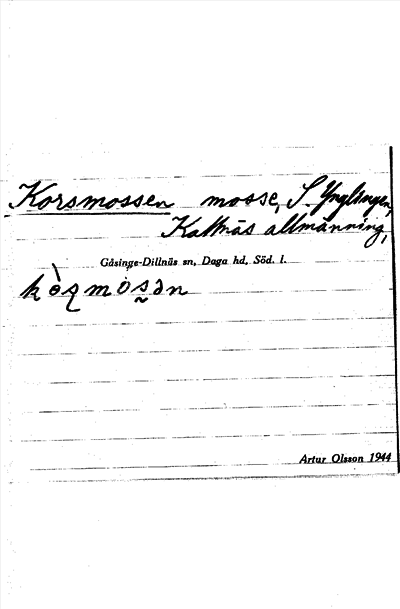 Korsmossen mosse, S. Ynglingen,
Kattnäs allmänning,
Gåsinge-Dillnäs sn, Daga hd, Söd. l.
Artur Olsson 1944